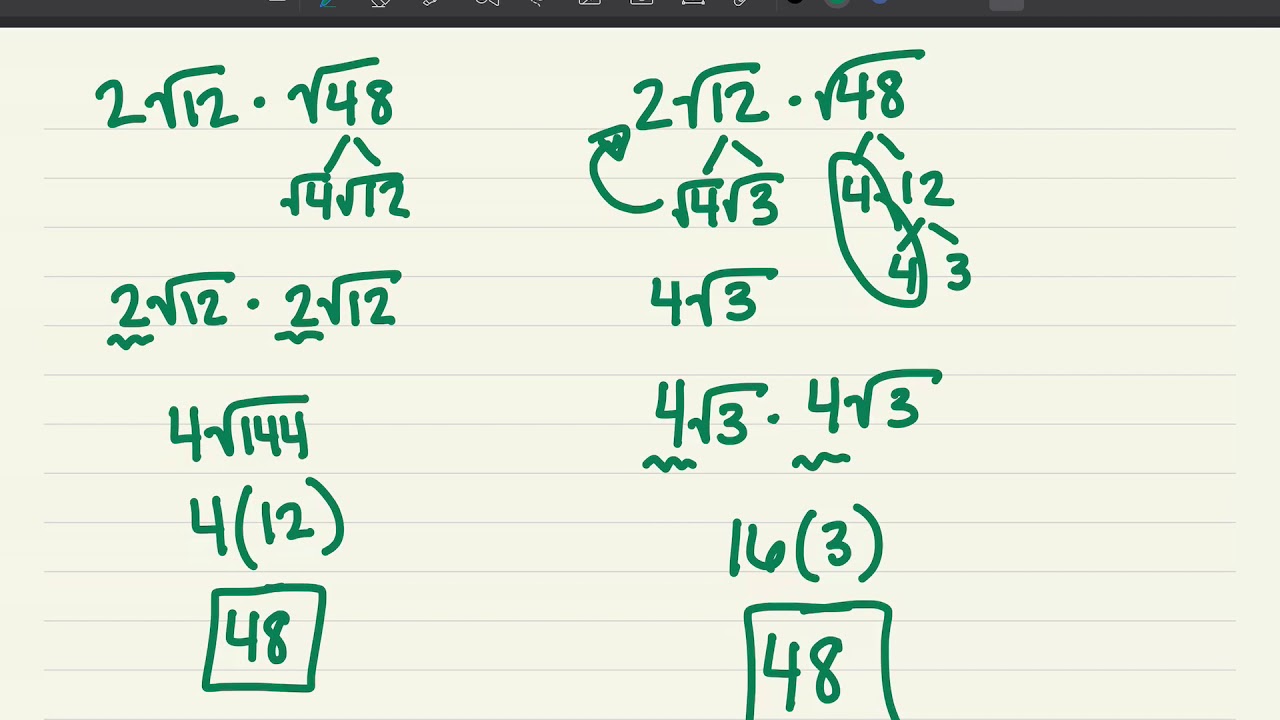 2√12 · √48
√4√12
2√12 · 2√12
4√144
4(12)
48
2√12 · √48
√4√3 4 12
4 3
4√3
4√3 · 4√3
16(3)
48